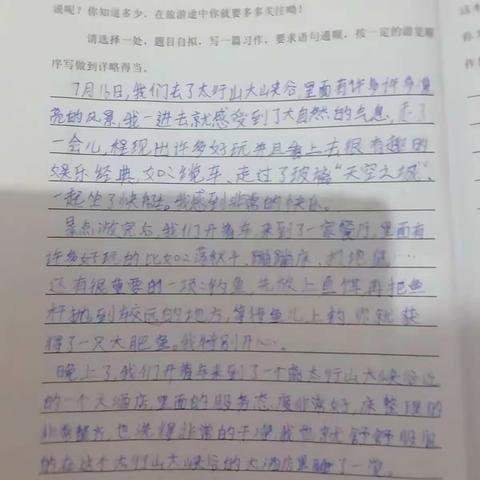 说呢？你知道多少，在旅游途中你就要多多关注呦！
请选择一处，题目自拟，写一篇习作，要求语句通顺，按一定的游览顺
序写做到详略得当。
7月16日，我们去了太行山大峡谷里面有许多许多漂
亮的风景，我一进去就感受到了大自然的气息，走了
一会儿，经现出许多好玩并且看上去很有趣的
娱乐经典，如：缆车、走过了玻璃“天空之城”、
一起坐了快艇。我感到非常的快乐。
景点游完后，我们开着车来到了一家餐厅，里面有
许多好玩的比如：荡秋千、蹦蹦床、打地鼠…
还有很重要的一项：钓鱼，先放上鱼饵再把鱼
杆抛到较远的地方，等待鱼儿上钓 我就获
得了一只大肥鱼。我特别开心。
晚上了，我们开着车来到了一个离太行山大峡谷近
的一个大酒店，里面的服务态度非常好，床整理的
非常整齐，也洗得非常的干净，我也就舒舒服服
的在这个太行山大峡谷的大酒店里睡了一觉。